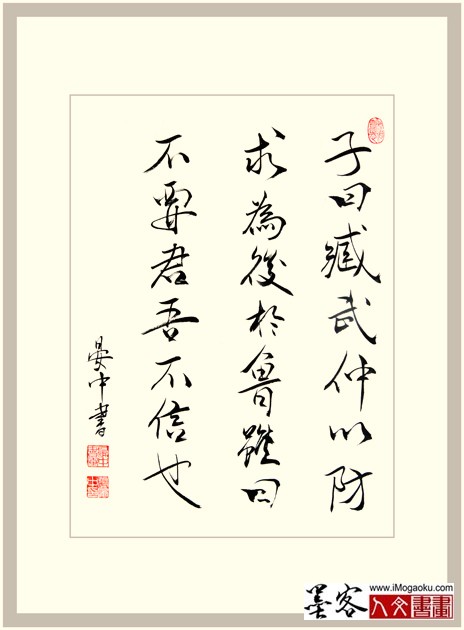 子曰臧武仲以防
求為後於魯雖曰
不要君吾不信也
晏中書
www.iMogaoku.com
墨客
人文書畫